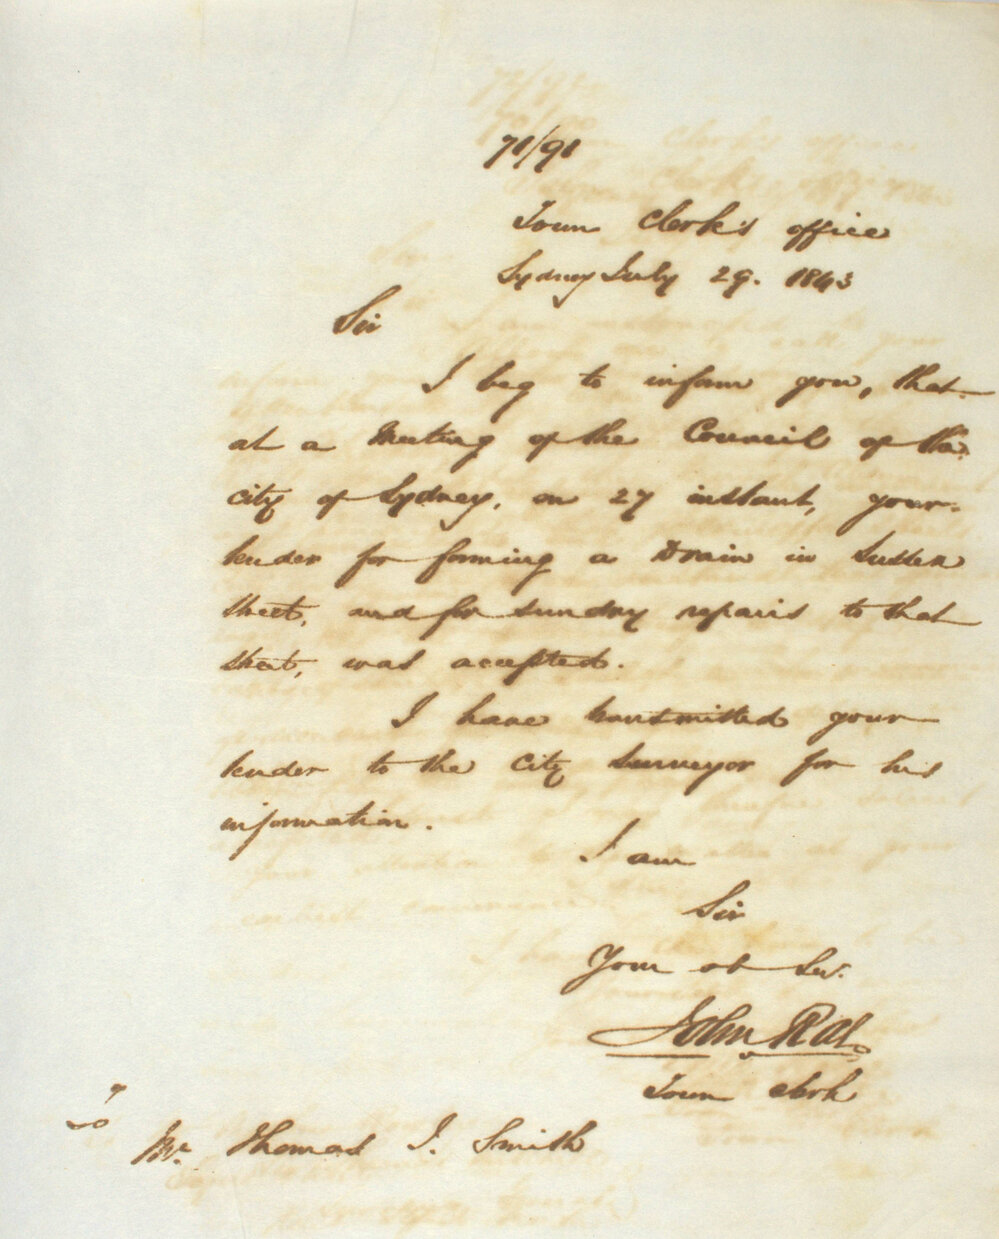 71/91
Town Clerk's office
Sydney July 29. 1843
Sir
I beg to inform you, that
at a Meeting of the Council of the
city of Sydney, on 27 instant, your
tender for forming a Drain in Sussex
street, and for sundry repairs to that
street, was accepted.
I have transmitted your
tender to the City Surveyor for his
information.
I am
Sir
Your ob Sev.
John
Town Clerk
To
Mr. Thomas J. Smith